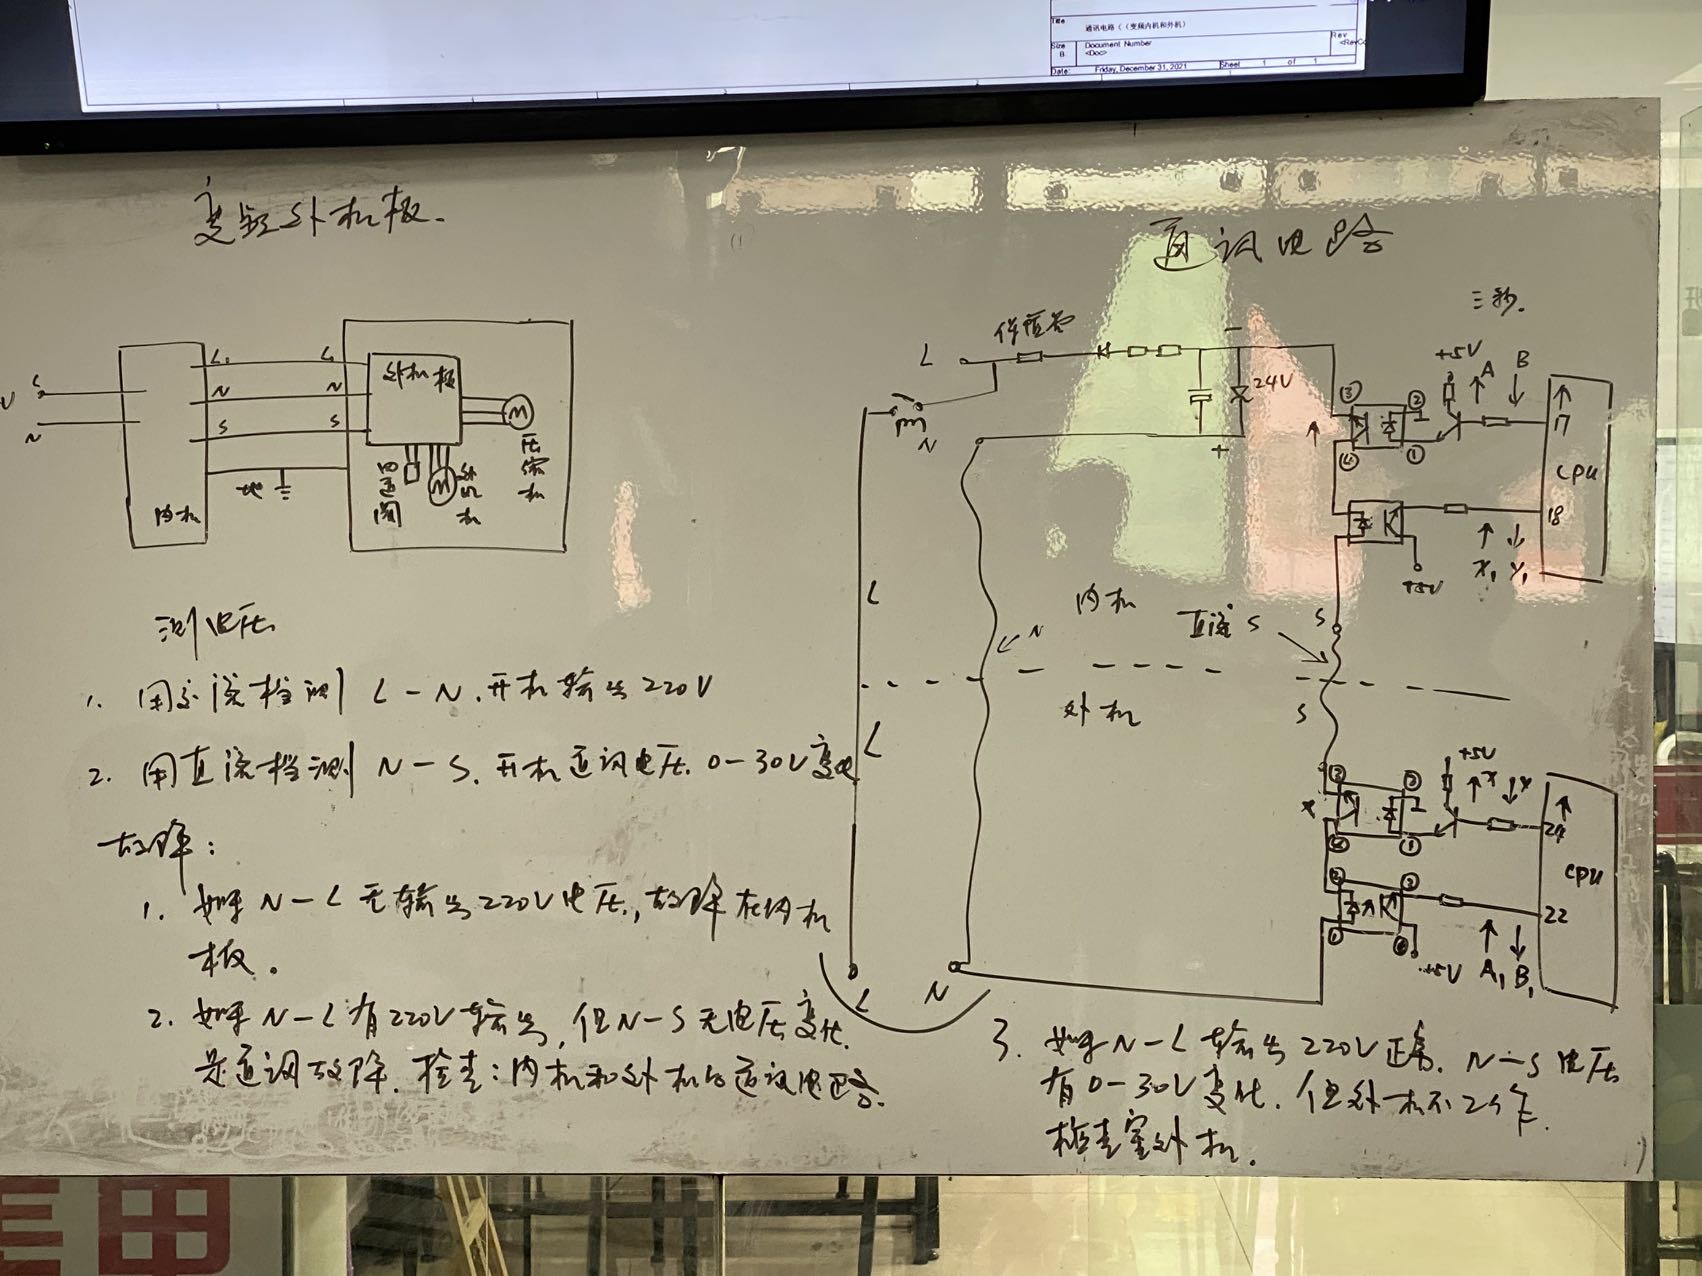 Title
通讯电路（（变频内机和外机）
Size
B
Document Number
<Doc>
Rev
Date:
Friday, December 31, 2021
Sheet
1
of
1
变频外机板.
通讯电路
三秒.
L
保险管
24V
+
N
L₁
N
S
地
内机
L₁
N
S
外机板
M
压缩机
M
外风机
四通阀
N
③
②
④
①
+5V
A
B
17
CPU
18
+5V
X₁
Y₁
测电压
1. 用交流档测 L-N.开机输出220V
2. 用直流档测 N-S.开机通讯电压.0-30V变化
故障:
1. 如果N-L无输出220V电压,故障在内机
板。
2. 如果N-L有220V输出,但N-S无电压变化.
是通讯故障.检查:内机和外机的通讯电路.
L
L
L
N
N
内机
外机
直流S
S
S
+5V
X
Y
24
CPU
22
+5V
A₁
B₁
3. 如果N-L输出220V正常.N-S电压
有0-30V变化.但外机不工作.
检查室外机.